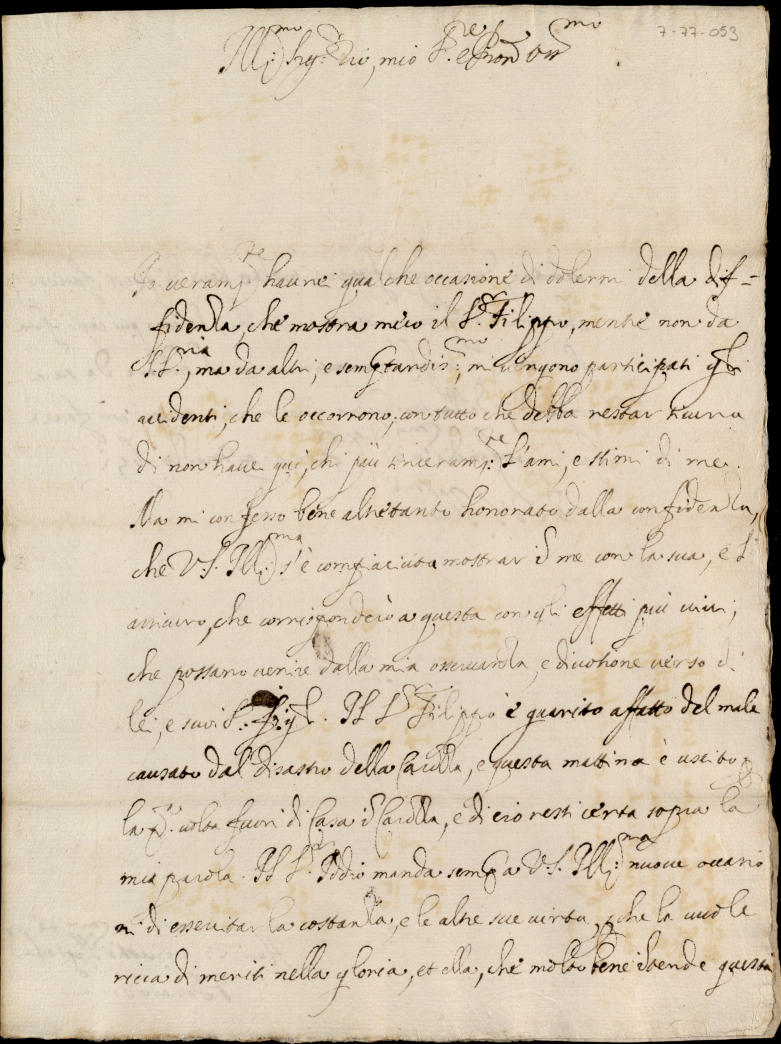 7-77-053
Ill:mo Sig:r Zio, mio S.re e Pron Oss mo
Io veram:te haurei qualche occasione di dolermi della dif=
fidenza che mostra meco il S.r Filippo, mentre non da
S.S.ria, ma da altri, e semp tardis:mo, mi vengono participati gli
accidenti, che le occorrono, con tutto che debba restar sicuria
di non haver qui, chi più sinceram:te l'ami, e stimi di me.
Ma mi confesso bene altretanto honorato dalla confidenza,
che V.S. Ill:ma s'è compiaciuta mostrar i me con la sua, e l'
assicuro, che corrisponderò a questa con gli effetti più vivi,
che possano venire dalla mia osservanza, e divotione verso di
lei, e suoi S.ri figl. Il S.r Filippo è guarito affatto del male
causato dal disastro della Carozza, e questa mattina è uscito
la p.a volta fuori di Casa i Carozza, e di ciò resti certa sopra la
mia parola. Il S.r Iddio manda semp a V.S. Ill:ma nuove occasio
ni di essercitar la costanza, e le altre sue virtù, p che la vuole
ricca di meriti nella gloria, et ella, che molto bene itende questa